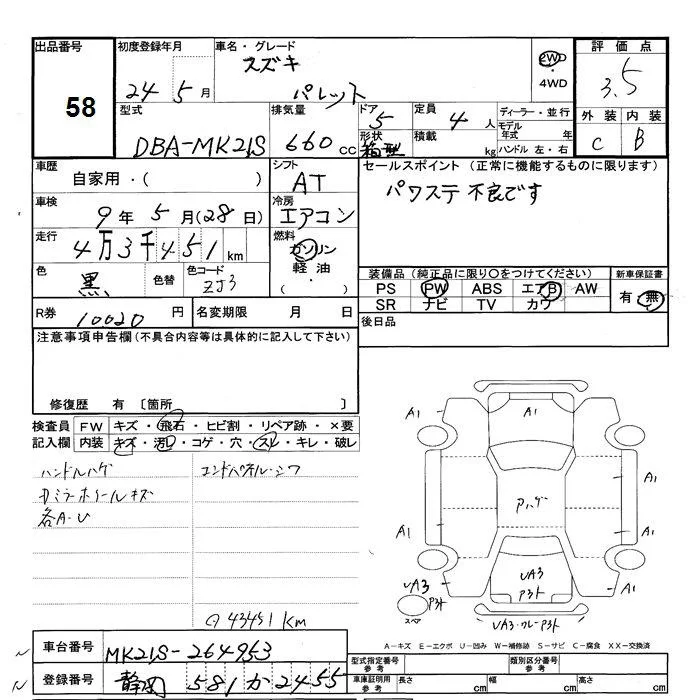 出品番号
58
初度登録年月
24年5月
車名・グレード
スズキ
パレット
2WD
・
4WD
評価点
3.5
外装 内装
C B
型式
DBA-MK21S
排気量
660 cc
ドア
5
形状
箱型
定員
4人
積載
kg
ディーラー・並行
モデル年式 年
ハンドル 左・右
車歴
自家用・( )
シフト
AT
セールスポイント (正常に機能するものに限ります)
パワステ不良です
車検
9年5月(28日)
冷房
エアコン
走行
4万3千451km
燃料
ガソリン
軽油・
( )
色
黒
色替
色コード
ZJ3
装備品(純正品に限り○をつけてください)
PS PW ABS エアB AW
SR ナビ TV カワ
新車保証書
有・無
R券
10020円
名変期限 月 日
後日品
注意事項申告欄(不具合内容等は具体的に記入して下さい)
修復歴 有 〔箇所 〕
検査員記入欄
FW キズ・飛石・ヒビ割・リペア跡・×要
内装 キズ・汚れ・コゲ・穴・スレ・キレ・破レ
ハンドルハゲ
各A・U
A1
A1
A1
A1
A1
A1
Aハゲ
UA3
P3ト
UA3
P3ト
スペア
◎43451km
A-キズ E-エクボ U-凹み W-補修跡 S-サビ C-腐食 XX-交換済
車台番号
MK21S-264953
登録番号
静岡 581 か 2455
型式指定番号
参考
類別区分番号
参考
車庫証明用
参考
長さ cm
幅 cm
高さ cm